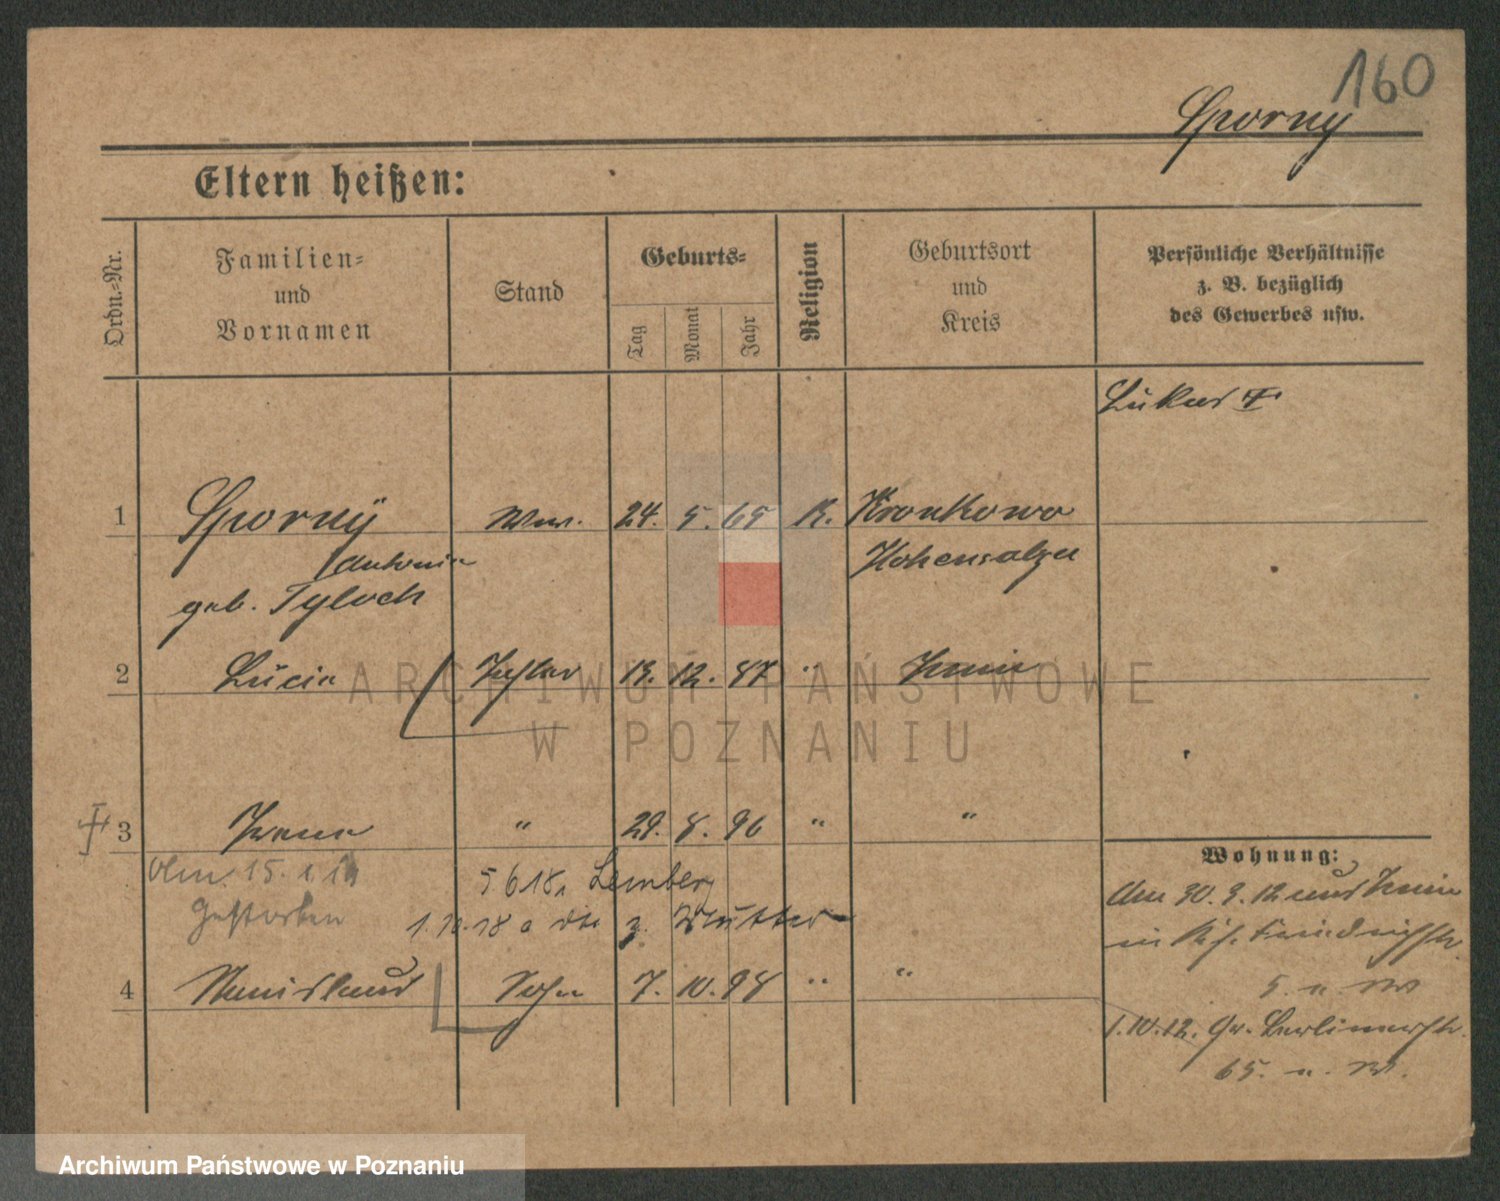 160
Sporny
Eltern heißen:
Ordn.-Nr.
Familien-
und
Vornamen
Stand
Geburts-
Tag
Monat
Jahr
Religion
Geburtsort
und
Kreis
Persönliche Verhältnisse
z. B. bezüglich
des Gewerbes usw.
Lukas
1 Sporny Ww. 24. 5. 65 K. Kronkowo
Antonie Hohensalza
geb. Tyloch
2 Lucia Tochter 13. 12. 87 " Znin
3 Irena " 29. 8. 96 " "
15. 1. 19
gestorben
5 6 18 Lemberg
1.10.18 z. Mutter
4 Stanislaus Sohn 7. 10. 98 " "
Wohnung:
Am 30. 3. 12 aus Znin
Friedrichstr.
5.
1.10.12. Gr. Berlinerstr.
65.
ARCHIWUM PAŃSTWOWE
W POZNANIU
Archiwum Państwowe w Poznaniu